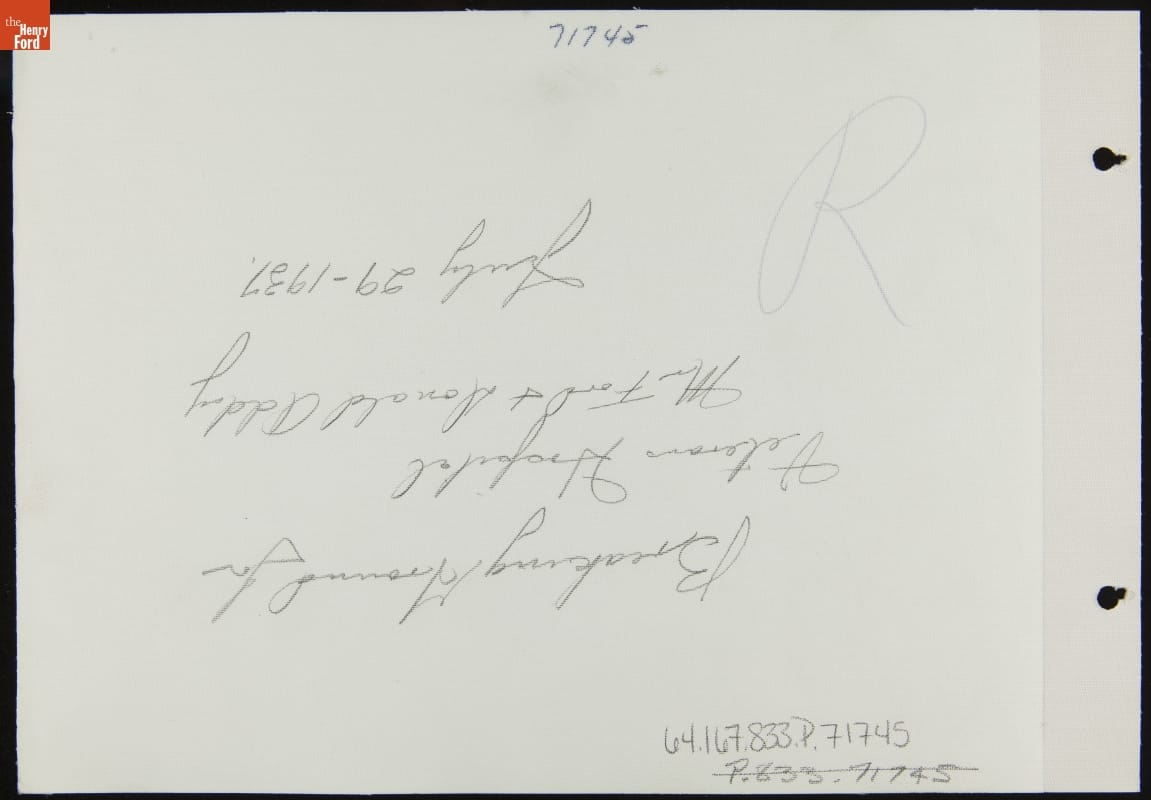 the
Henry
Ford
71745
R
Breaking Ground for
Veterans Hospital
Mr. Ford & Donald Addy
July 29-1937.
64.167.833.P.71745
P.833.71745